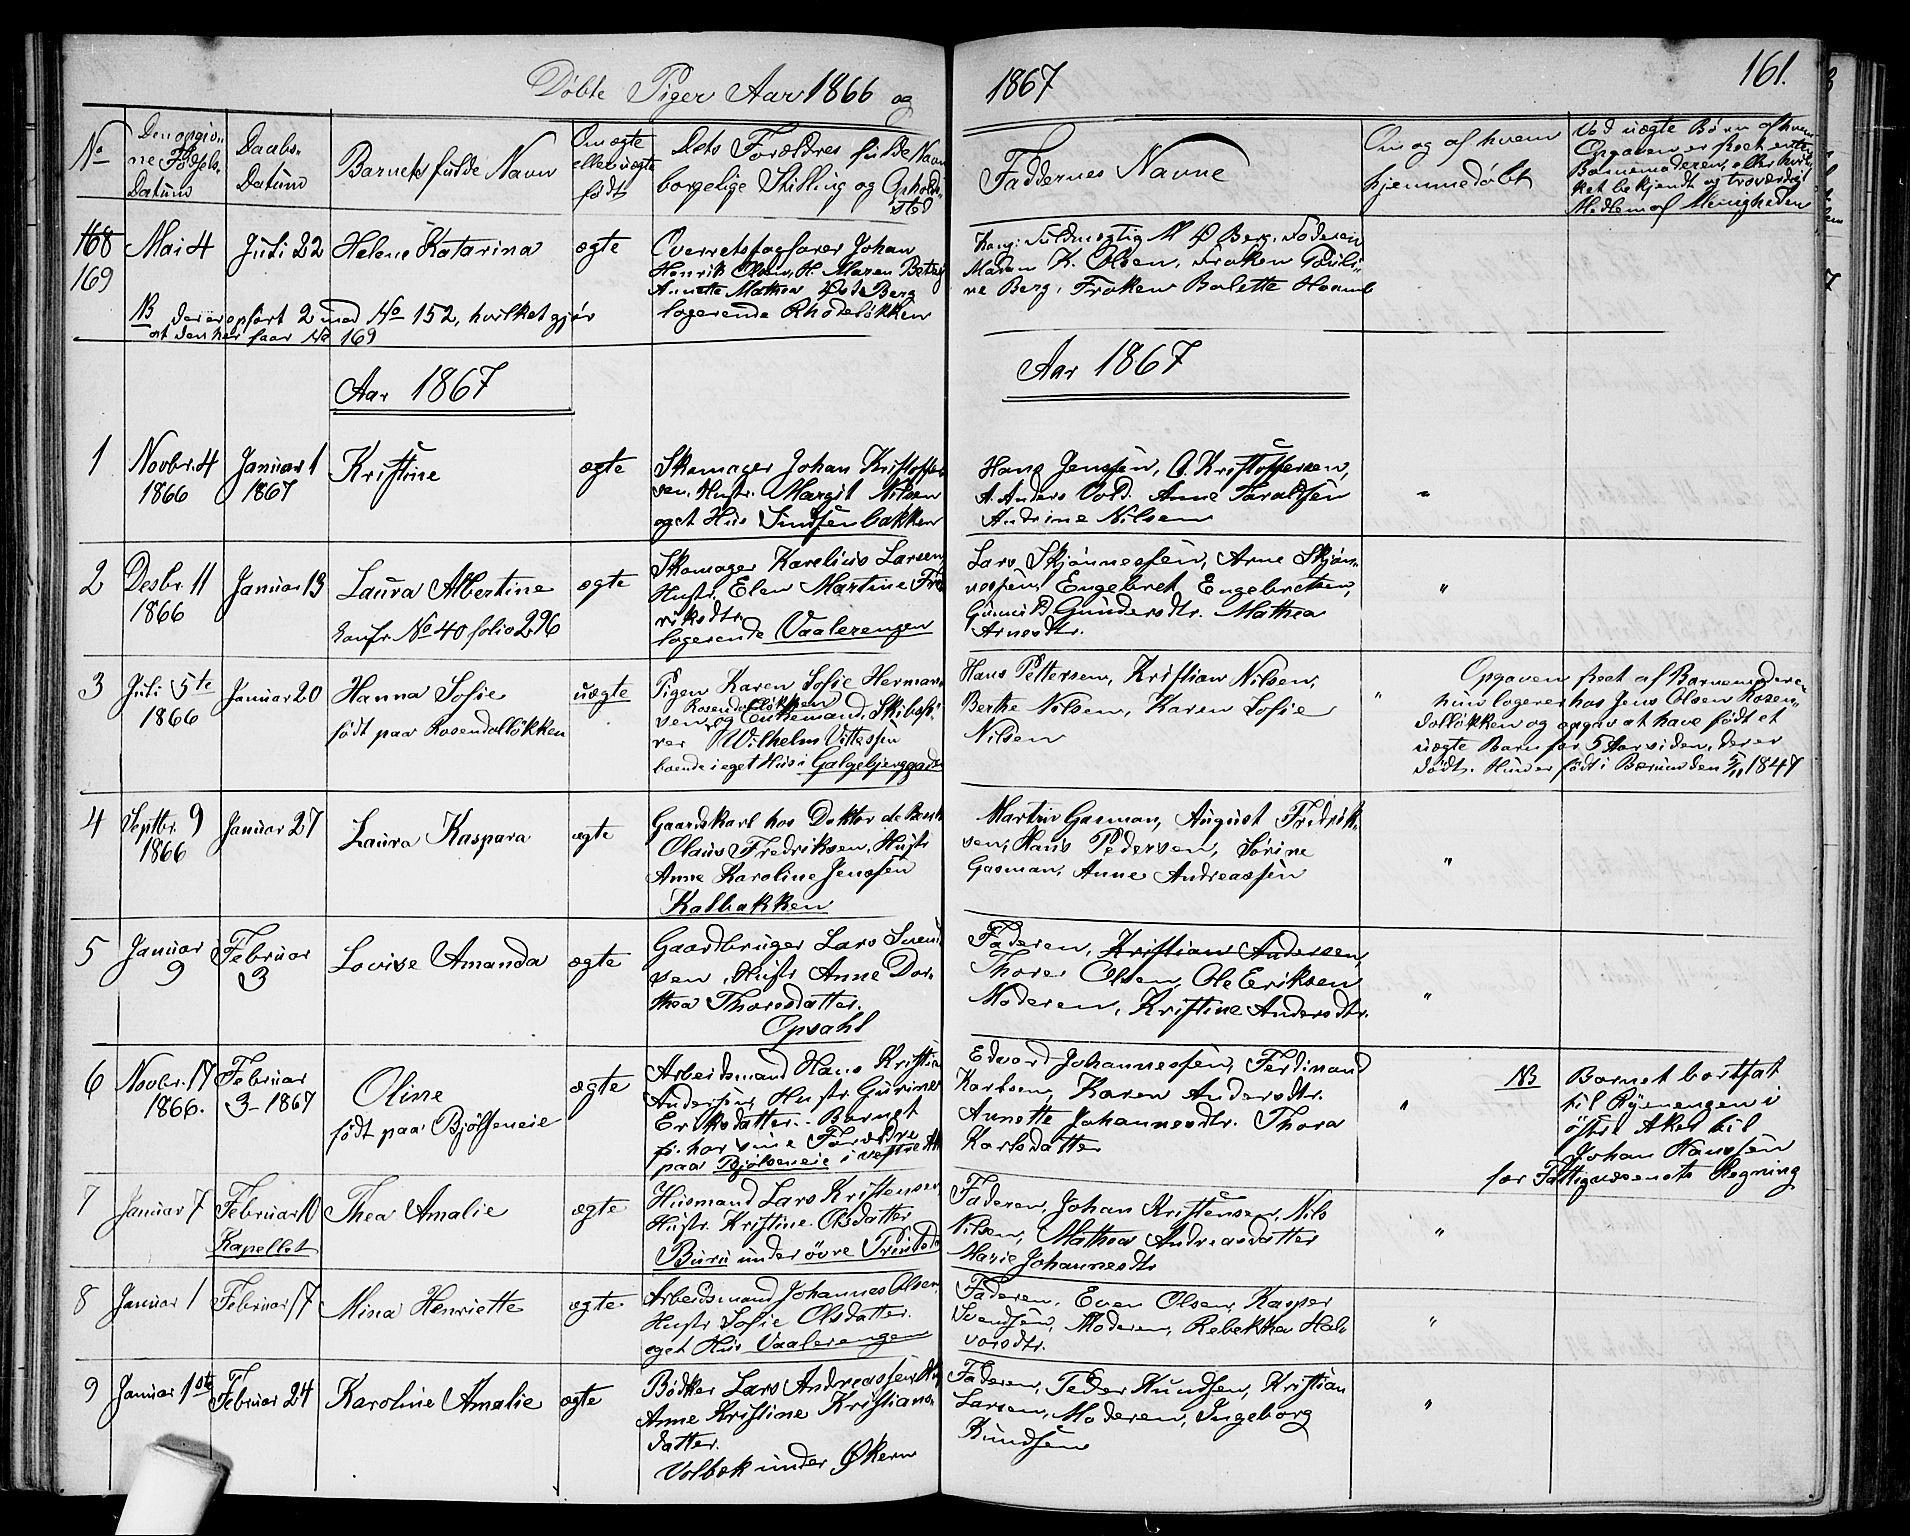 Døbte Piger Aar 1866 og 1867
161.
No
Den opgiv-
ne Fødsels-
Datum
Daabs-
Datum
Barnets fulde Navn
Om ægte
eller uægte
født
Dets Forældres fulde Navn
borgelige Stilling og Opholds-
sted
Faddernes Navne
Om og af hvem
hjemmedøbt
Ved uægte Børn af hvem
Opgaven er skeet enten
Barnemoderen, eller hvil-
ket bekjendt og troværdigt
Medlem af Menigheden
168
169
Mai 4
Juli 22
Helene Katarina
ægte
Overretssagfører Johan
Henrik Olsen, H. Maren Betsy
Annette Mathea Berg
logerende Rhodeløkken
Fuldmægtig M Berg, Foderen
Maren K. Olsen, Frøken
ne Berg, Frøken Bolette
NB der er opført 2 med No 152, hvilket gjør
at den her faar No 169
Aar 1867
Aar 1867
1
Novbr. 4
1866
Januar 1
1867
Kristine
ægte
Skomager Johan Kristoffer-
sen, Hustr. Margit Nilsen
eget Hus Sinsenbakken
Hans Jenssen, O. Kristoffersen,
A. Anders Vold. Anne Taraldsen
Andrine Nilsen
"
2
Desbr. 11
1866
Januar 13
Laura Albertine
konfr. No 40 folio 296
ægte
Skomager Karelius Larsen,
Hustr. Elen Martine Fred-
riksdtr.
logerende Vaalerengen
Lars Skjønnessen, Arne Skjøn-
nessen, Engebret Engebretsen,
Gundersdtr. Mathea
Arnesdtr.
"
3
Juli 5te
1866
Januar 20
Hanna Sofie
født paa Rosendalløkken
uægte
Pigen Karen Sofie Herman-
Rosendalløkken
sen, og Enkemand, Skibsk-
rer Wilhelm Vittessen
boende i eget Hus i Galgebjerggaden
Hans Pettersen, Kristian Nilsen,
Berthe Nilsen, Karen Sofie
Nilsen
"
Opgaven skeet af Barnemoderen
hun logerer hos Jens Olsen Rosen-
dalløkken og opgav at have født et
uægte Barn for 5 Aar siden, der er
dødt. Hun er født i Bærum den 5/11 1847
4
Septbr. 9
1866
Januar 27
Laura Kaspara
ægte
Gaardskarl hos Doktor de Besch
Olaus Fredriksen, Hustr
Anne Karoline Jenssen
Kalbakken
Martin Gasman, August Fredrik-
sen, Hans Pedersen, Sørine
Gasman, Anne Andreassen
"
5
Januar
9
Februar
3
Lovise Amanda
ægte
Gaardbruger Lars Svend-
sen, Hustr Anne Dor-
thea Thoresdatter.
Opsahl
Faderen, Kristian Andersen,
Thorer Olsen, Ole Eriksen
Moderen, Kristine Andersdtr.
"
6
Novbr. 17
1866.
Februar
3- 1867
Oline
født paa Bjølseneie
ægte
Arbeidsmand Hans Kristian
Andersen, Hustr. Gurine
Eriksdatter.. Barnet
har sine Forældre
paa Bjølseneie i vestre Ak
Edvard Johannessen, Ferdinand
Karlsen, Karen Andersdtr.
Annette Johannesdtr. Thora
Karlsdatter
"
NB
Barnet bortsat
til Ryenengen i
østre Aker til
Johan Hanssen
for Fattigvæsenets Regning
7
Januar 7
Februar 10
Kapellet
Thea Amalie
ægte
Husmand Lars Kristensen
Hustr. Kristine Olsdatter
Buru under øvre Trinsted
Faderen, Johan Kristensen, Nils
Nilsen, Mathea Andreasdatter
Marie Johannesdtr
"
8
Januar 1
Februar 17
Mina Henriette
ægte
Arbeidsmand Johannes Olsen
Hustr Sofie Olsdatter.
eget Hus Vaalerengen
Faderen, Even Olsen, Kasper
Svendsen, Moderen, Rebekka Hal-
vorsdtr.
"
9
Januar 1ste
Februar 24
Karoline Amalie
ægte
Bødker Lars Andreassen H
Anne Kristine Kristians-
datter.
Volbæk under Økern
Faderen, Peder Knudsen, Kristian
Larsen, Moderen, Ingeborg
Knudsen
"